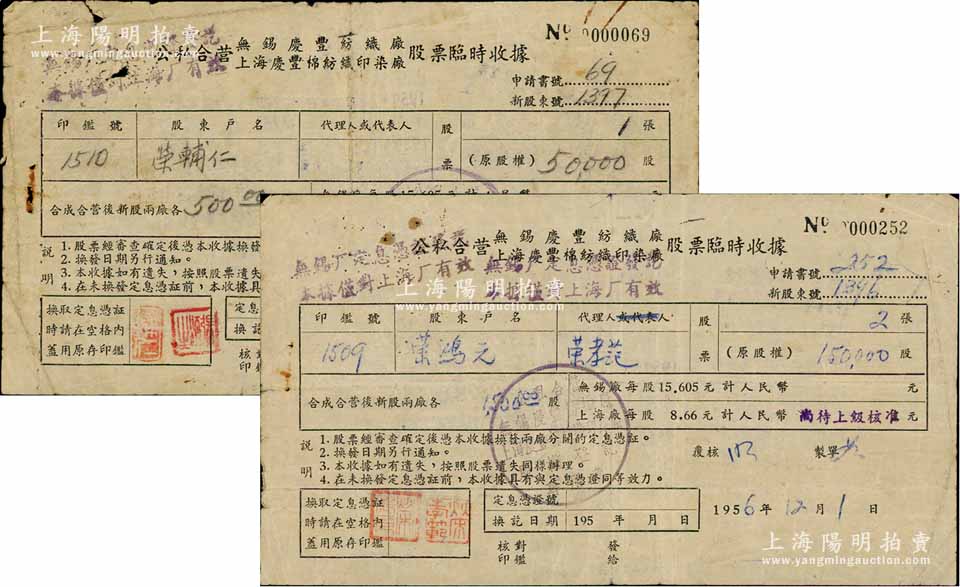 上海陽明拍卖
www.yangmingauction.com
公私合营 無錫慶豐紡織廠
上海慶豐棉紡織印染廠 股票臨時收據
№ 0000069
申請書號 69
新股東號 1397
印鑑號 股東戶名 代理人或代表人 股票 1 張
1510 榮輔仁 (原股權) 50,000 股
合成合營後新股兩廠各 500.00
說明
1. 股票經審查確定後憑本收據換發
2. 換發日期另行通知。
3. 本收據如有遺失，按照股票遺失
4. 在未換發定息憑証前，本收據具
換取定息憑証
時請在空格內
蓋用原存印鑑
定息
換訖
核對
印鑑
公私合营 無錫慶豐紡織廠
上海慶豐棉紡織印染廠 股票臨時收據
№ 0000252
無錫厂定息憑証發訖
本據僅對上海厂有效
無錫厂定息憑証發訖
本據僅對上海厂有效
申請書號 252
新股東號 1396
印鑑號 股東戶名 代理人或代表人 股票 2 張
1509 榮鴻元 榮孝范 (原股權) 150,000 股
合成合營後新股兩廠各 1,500.00 股
無錫廠每股 15.605 元計人民幣 元
上海廠每股 8.66 元計人民幣 尚待上級核准 元
說明
1. 股票經審查確定後憑本收據換發兩廠分開的定息憑証。
2. 換發日期另行通知。
3. 本收據如有遺失，按照股票遺失同樣辦理。
4. 在未換發定息憑証前，本收據具有與定息憑證同等效力。
覆核 製單
換取定息憑証
時請在空格內
蓋用原存印鑑
定息憑證號
換訖日期 195 年 月 日
1956年12月1日
核對
印鑑
發給
上海陽明拍卖
www.yangmingauction.com
上海陽明拍卖
www.yangmingauction.com